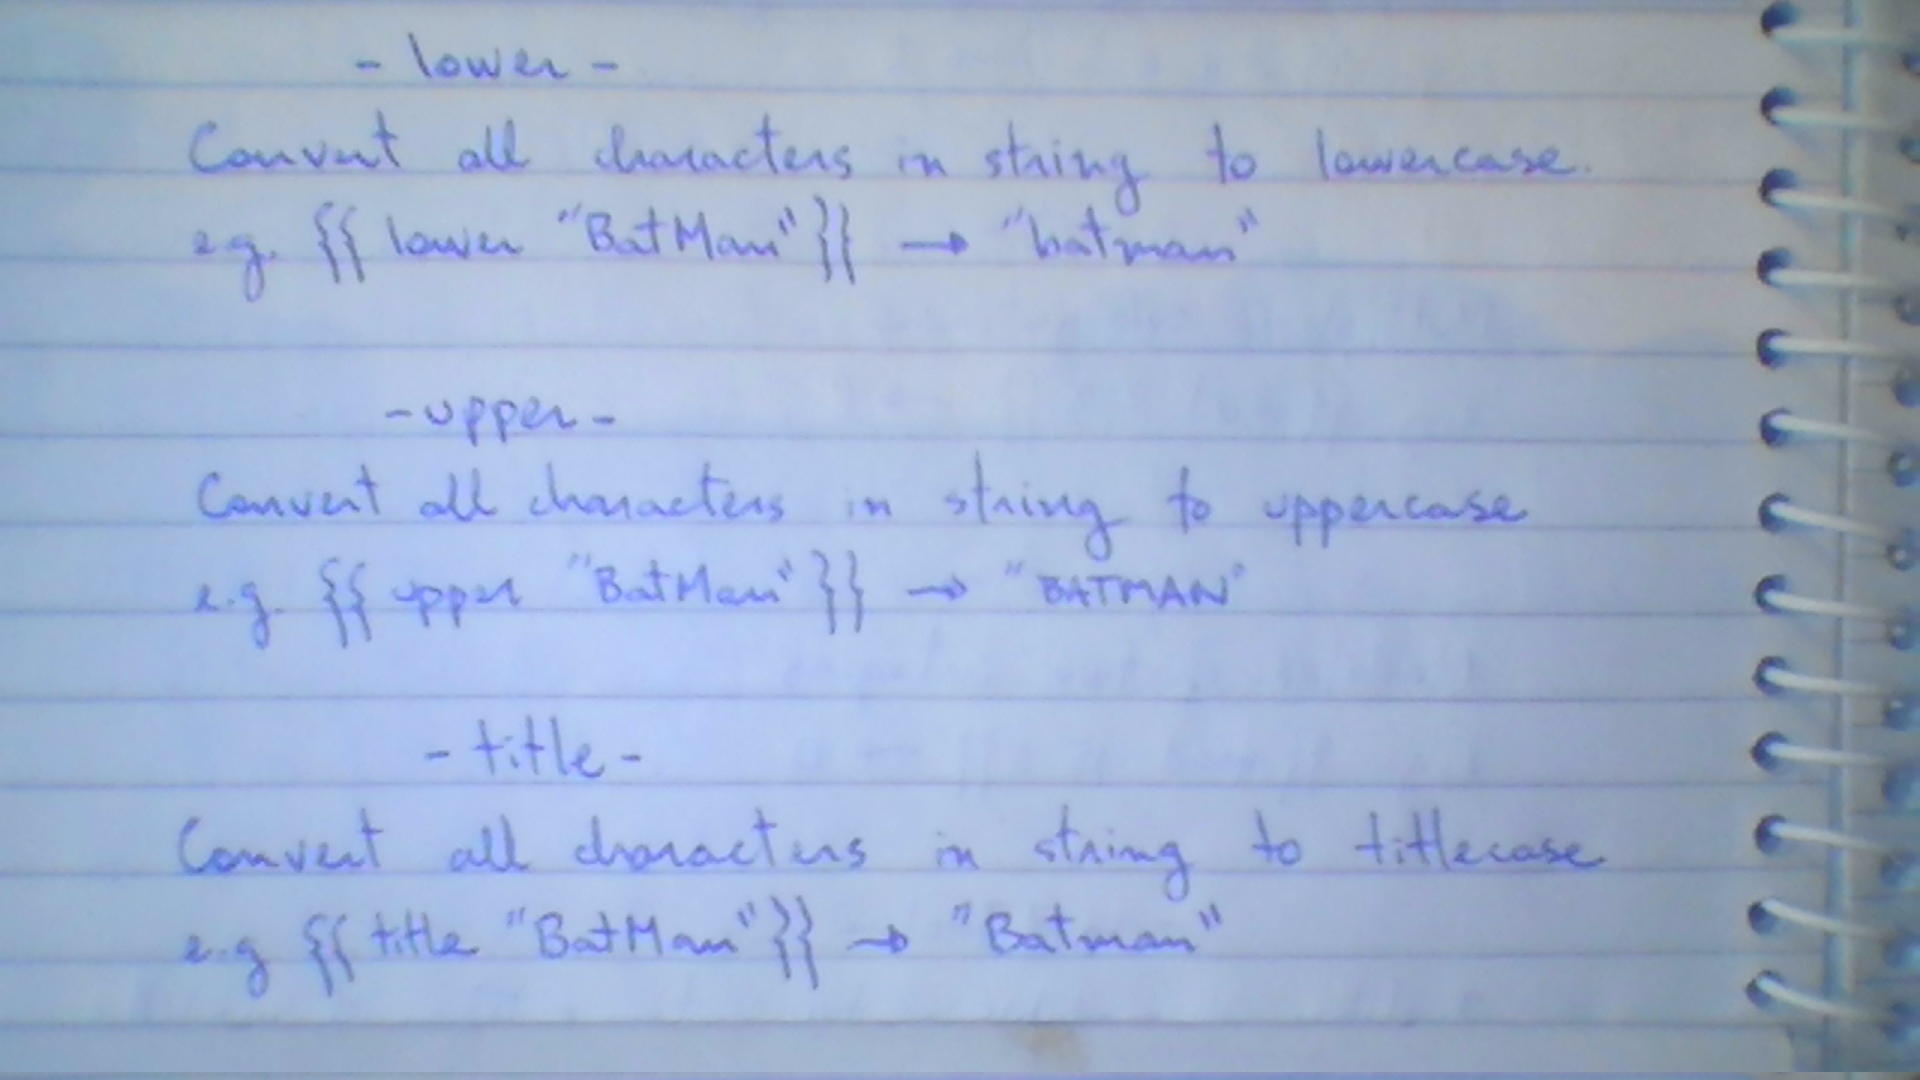 - lower -
Convert all characters in string to lowercase.
e.g. {{ lower "BatMan" }} → "batman"
- upper -
Convert all characters in string to uppercase
e.g. {{ upper "BatMan" }} → "BATMAN"
- title -
Convert all characters in string to titlecase
e.g {{ title "BatMan" }} → "Batman"